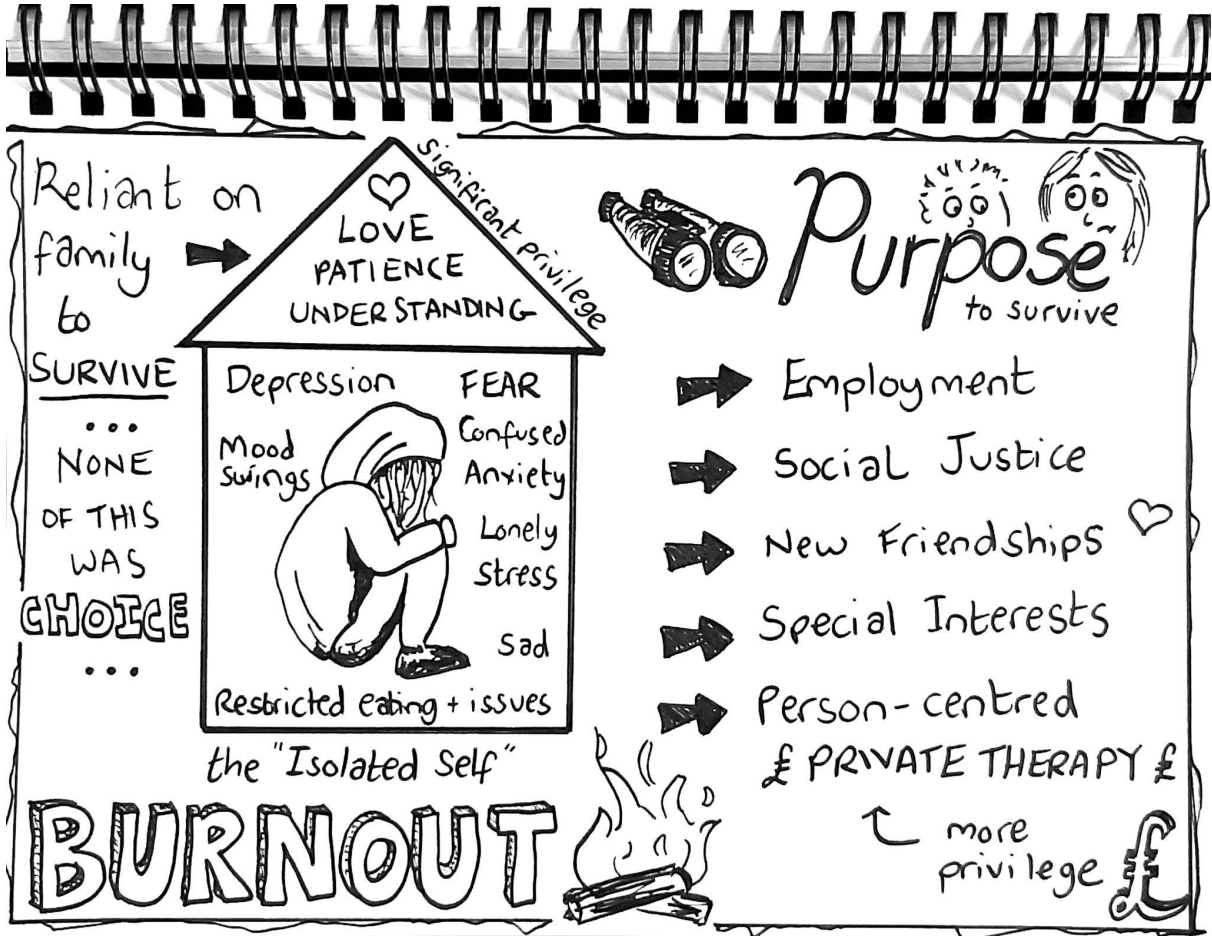 Reliant on
family
to
SURVIVE
...
NONE
OF THIS
WAS
CHOICE
...
LOVE
PATIENCE
UNDERSTANDING
Significant privilege
Depression
FEAR
Mood
Swings
Confused
Anxiety
Lonely
Stress
Sad
Restricted eating + issues
the "Isolated Self"
BURNOUT
Purpose
to survive
Employment
Social Justice
New Friendships
Special Interests
Person-centred
£ PRIVATE THERAPY £
more
privilege
£